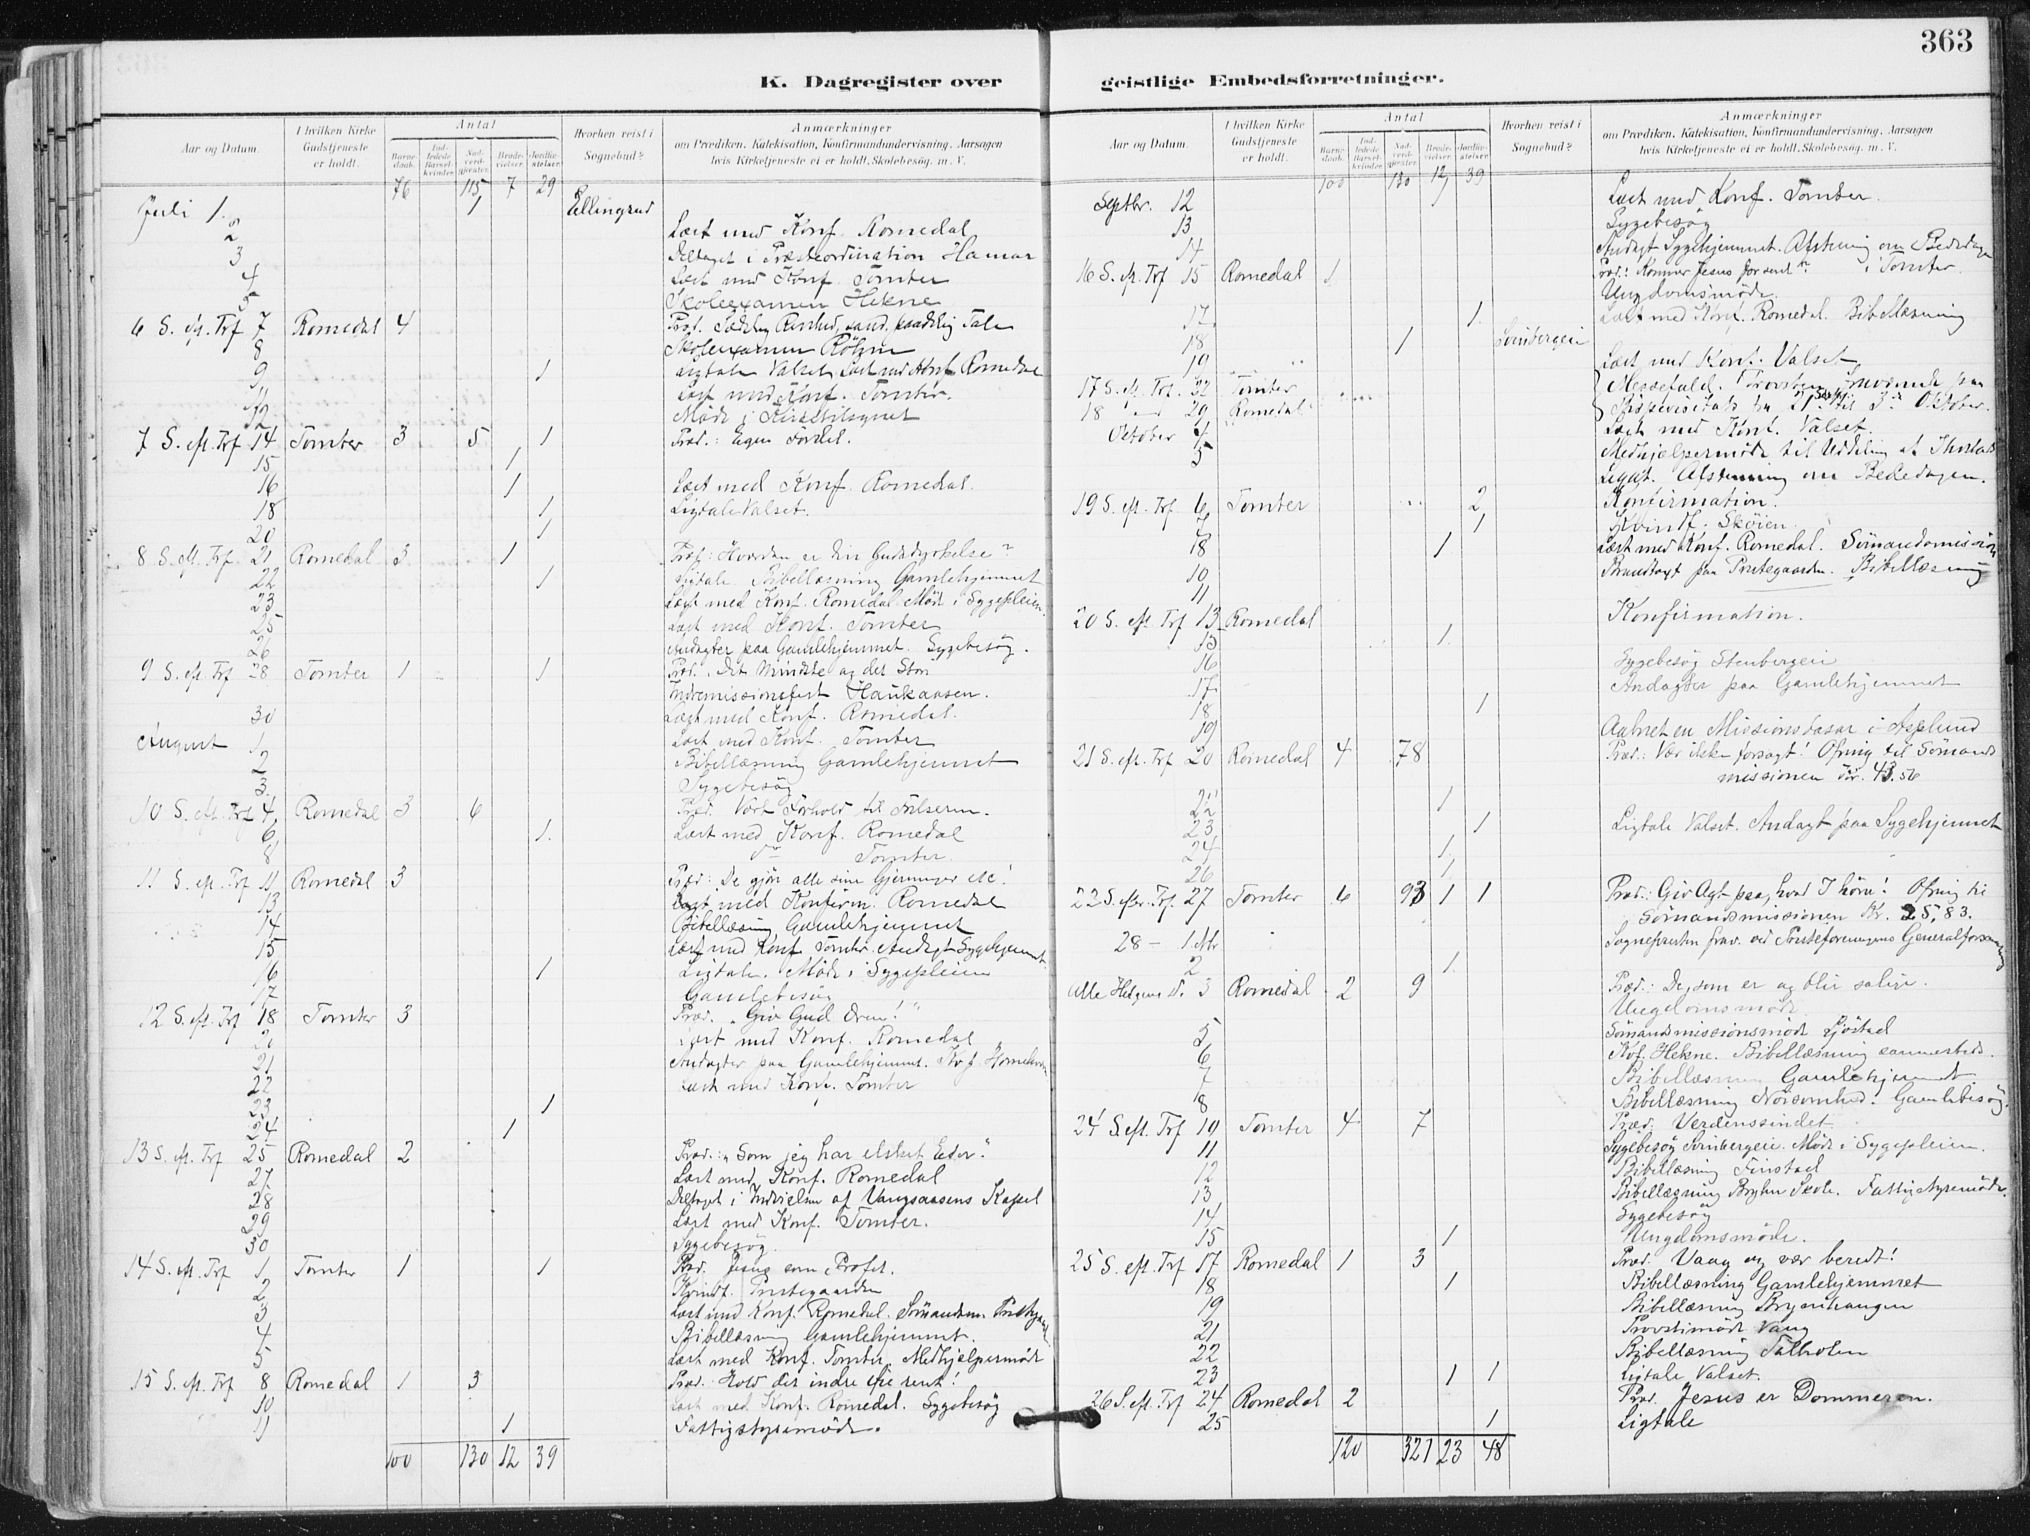 363
K. Dagregister over geistlige Embedsforretninger.
Aar og Datum. I hvilken Kirke Gudstjeneste er holdt. Antal Barne-daab. Ind-ledede Barsel-kvinder. Nad-verd-gjester. Brude-vielser. Jordfæ-stelser. Hvorhen reist i Sognebud? Anmærkninger om Prædiken, Katekisation, Konfirmandundervisning, Aarsagen hvis Kirketjeneste ei er holdt, Skolebesøg, m. V.
76 115 7 29
Juli 1. 1 Ellingsrud
2 Læst med Konf. Romedal
3 Deltaget i Præsteordination Hamar
4 Læst med Konf. Tomter
5 Skoleexamen Hekne
6 S. eft. Trf 7 Romedal 4 Præd.
8 Skoleexamen
9 1 Ligtale Valset. Læst med Konf. Romedal
11 Læst med Konf. Tomter.
12 Møde i Kirketilsynet
7 S. eft. Trf 14 Tomter 3 5 1 Præd.: Egen
15 1
16 1 Læst med Konf. Romedal.
18 1 Ligtale Valset.
20 1
8 S. eft. Trf. 21 Romedal 3 1 Præd: Hvordan er din Gudsdyrkelse?
22 1 Ligtale. Bibellæsning Gamlehjemmet
23 Læst med Konf. Romedal. Møde i Sygepleien
25 Læst med Konf. Tomter
26 Andagter paa Gamlehjemmet. Sygebesøg.
9 S. eft. Trf 28 Tomter 1 1 Præd. Det Mindste og det Store
Indremissionsfest Haukaasen.
30 Læst med Konf. Romedal.
August 1. Læst med Konf. Tomter
2 Bibellæsning Gamlehjemmet
3. Sygebesøg
10 S. eft. Trf 4. Romedal 3 6 Præd. Vort Forhold til Frelseren
6 1. Læst med Konf. Romedal
8 do Tomter.
11 S. eft. Trf 11 Romedal 3 Præd: De gjør alle sine Gjerninger etc!
13 Læst med Konfirm. Romedal
14 Bibellæsning Gamlehjemmet
15 Læst med Konf Tomter. Andagt Sygehjemmet.
16 1 Ligtale. Møde i Sygepleien
17 Gamlebesøg
12 S. eft. Trf 18 Tomter 3 Præd. "Giv Gud Æren!"
20 Læst med Konf. Romedal
21 Andagter paa Gamlehjemmet. Kvf.
22 Læst med Konf. Tomter
23 1
24 1
13 S. eft. Trf 25 Romedal 2 Præd.: "Som jeg har elsket Eder".
27 Læst med Konf. Romedal
28 Deltaget i Indvielsen af Vangsaasens Kapel
29 Læst med Konf. Tomter.
30 Sygebesøg.
14 S. eft. Trf 1 Tomter 1 1 Præd. Jesus som Profet.
2 Kvindf. Præstegaarden
3 Læst med Konf. Romedal. Sømandsm.
4 Bibellæsning Gamlehjemmet.
5 Læst med Konf. Tomter. Medhjelpermøde
15 S. eft. Trf 8 Romedal 1 3 Præd.: Hold det indre Øie rent!
10 Læst med Konf. Romedal. Sygebesøg
11 1 Fattigstyremøde.
100 130 12 39
Aar og Datum. I hvilken Kirke Gudstjeneste er holdt. Antal Barne-daab. Ind-ledede Barsel-kvinder. Nad-verd-gjester. Brude-vielser. Jordfæ-stelser. Hvorhen reist i Sognebud? Anmærkninger om Prædiken, Katekisation, Konfirmandundervisning, Aarsagen hvis Kirketjeneste ei er holdt, Skolebesøg, m. V.
100 130 12 39
Septbr. 12 1 Læst med Konf. Tomter.
13 Sygebesøg
14 Andagt Sygehjemmet. Afstemning om Bededagen
16 S. eft. Trf 15 Romedal 1 Præd.: Kommer Jesus for sent? i Tomter.
Ungdomsmøde.
17. 1. Læst med Konf. Romedal. Bibellæsning
18 1
19 Læst med Konf. Valset
17 S. eft. Trf. 22 Tomter Messefald.
18 " — " 29 Romedal Bispevisitats fra 21de Sept. til 3de Oktober.
Oktober 4 Læst med Konf. Valset.
5 Medhjelpermøde til Uddeling af
Legat. Afstemning om Bededagen.
19 S. eft. Trf. 6. Tomter 2 Konfirmation.
7 1 Kvindf. Skøien.
8 1 Læst med Konf. Romedal. Sømandsmission
10 paa Præstegaarden. Bibellæsning
11
20 S. eft. Trf 13 Romedal Konfirmation.
15 1.
16 Sygebesøg Stenbergeie
17 Andagter paa Gamlehjemmet
18 1
19 Aabnet en Missionsbasar i Asplund
21 S. eft. Trf 20 Romedal 4 78 Præd.: Vær ikke forsagt! Ofring til Sømands
missionen Kr. 43.56
22 1
23 1 Ligtale Valset. Andagt paa Sygehjemmet
24 1
26 1
22 S. efter. Trf. 27 Tomter 6 93 1 1 Præd.: Giv Agt paa, hvad I hører! Ofring til
Sømandsmissionen Kr. 25,83.
28 — 1. Nov Sognepresten frav. ved Presteforeningens Generalforsamling
2 1.
Alle Helgens D. 3 Romedal 2 9 Præd.: De, som er og blir salige.
Ungdomsmøde.
5 Sømandsmissionsmøde
6 Kvf. Hekne. Bibellæsning sammesteds.
7 Bibellæsning Gamlehjemmet
8 Bibellæsning Nøisomhed. Gamlebesøg.
24 S. eft. Trf 10 Tomter 4 7 Præd. Verdenssindet.
11 Sygebesøg Møde i Sygepleien.
12 Bibellæsning Finstad
13 Bibellæsning Bryhn Skole. Fattigstyremøde.
14 Sygebesøg
15 1 Ungdomsmøde.
25 S. eft. Trf 17 Romedal 1 3 Præd. Vaag og vær beredt!
18 1 Bibellæsning Gamlehjemmet
19 Bibellæsning Brynhaugen
21 Provstimøde Vang
22 Bibellæsning
23 1 1 Ligtale Valset.
26 S. eft. Trf 24 Romedal 2 Præd. Jesus er Dommeren.
25 1 Ligtale
120 321 23 48